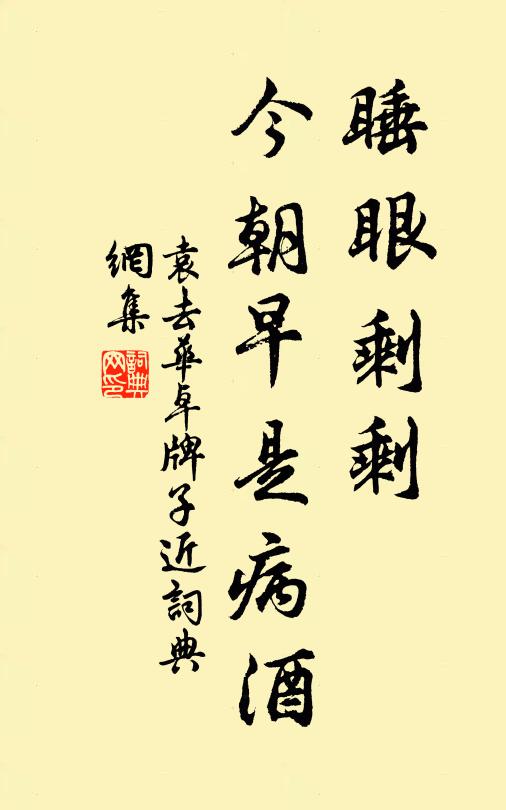 睡眼剩剩
今朝早是病酒
袁去華卓牌子近詞典
網集
詞典
网印